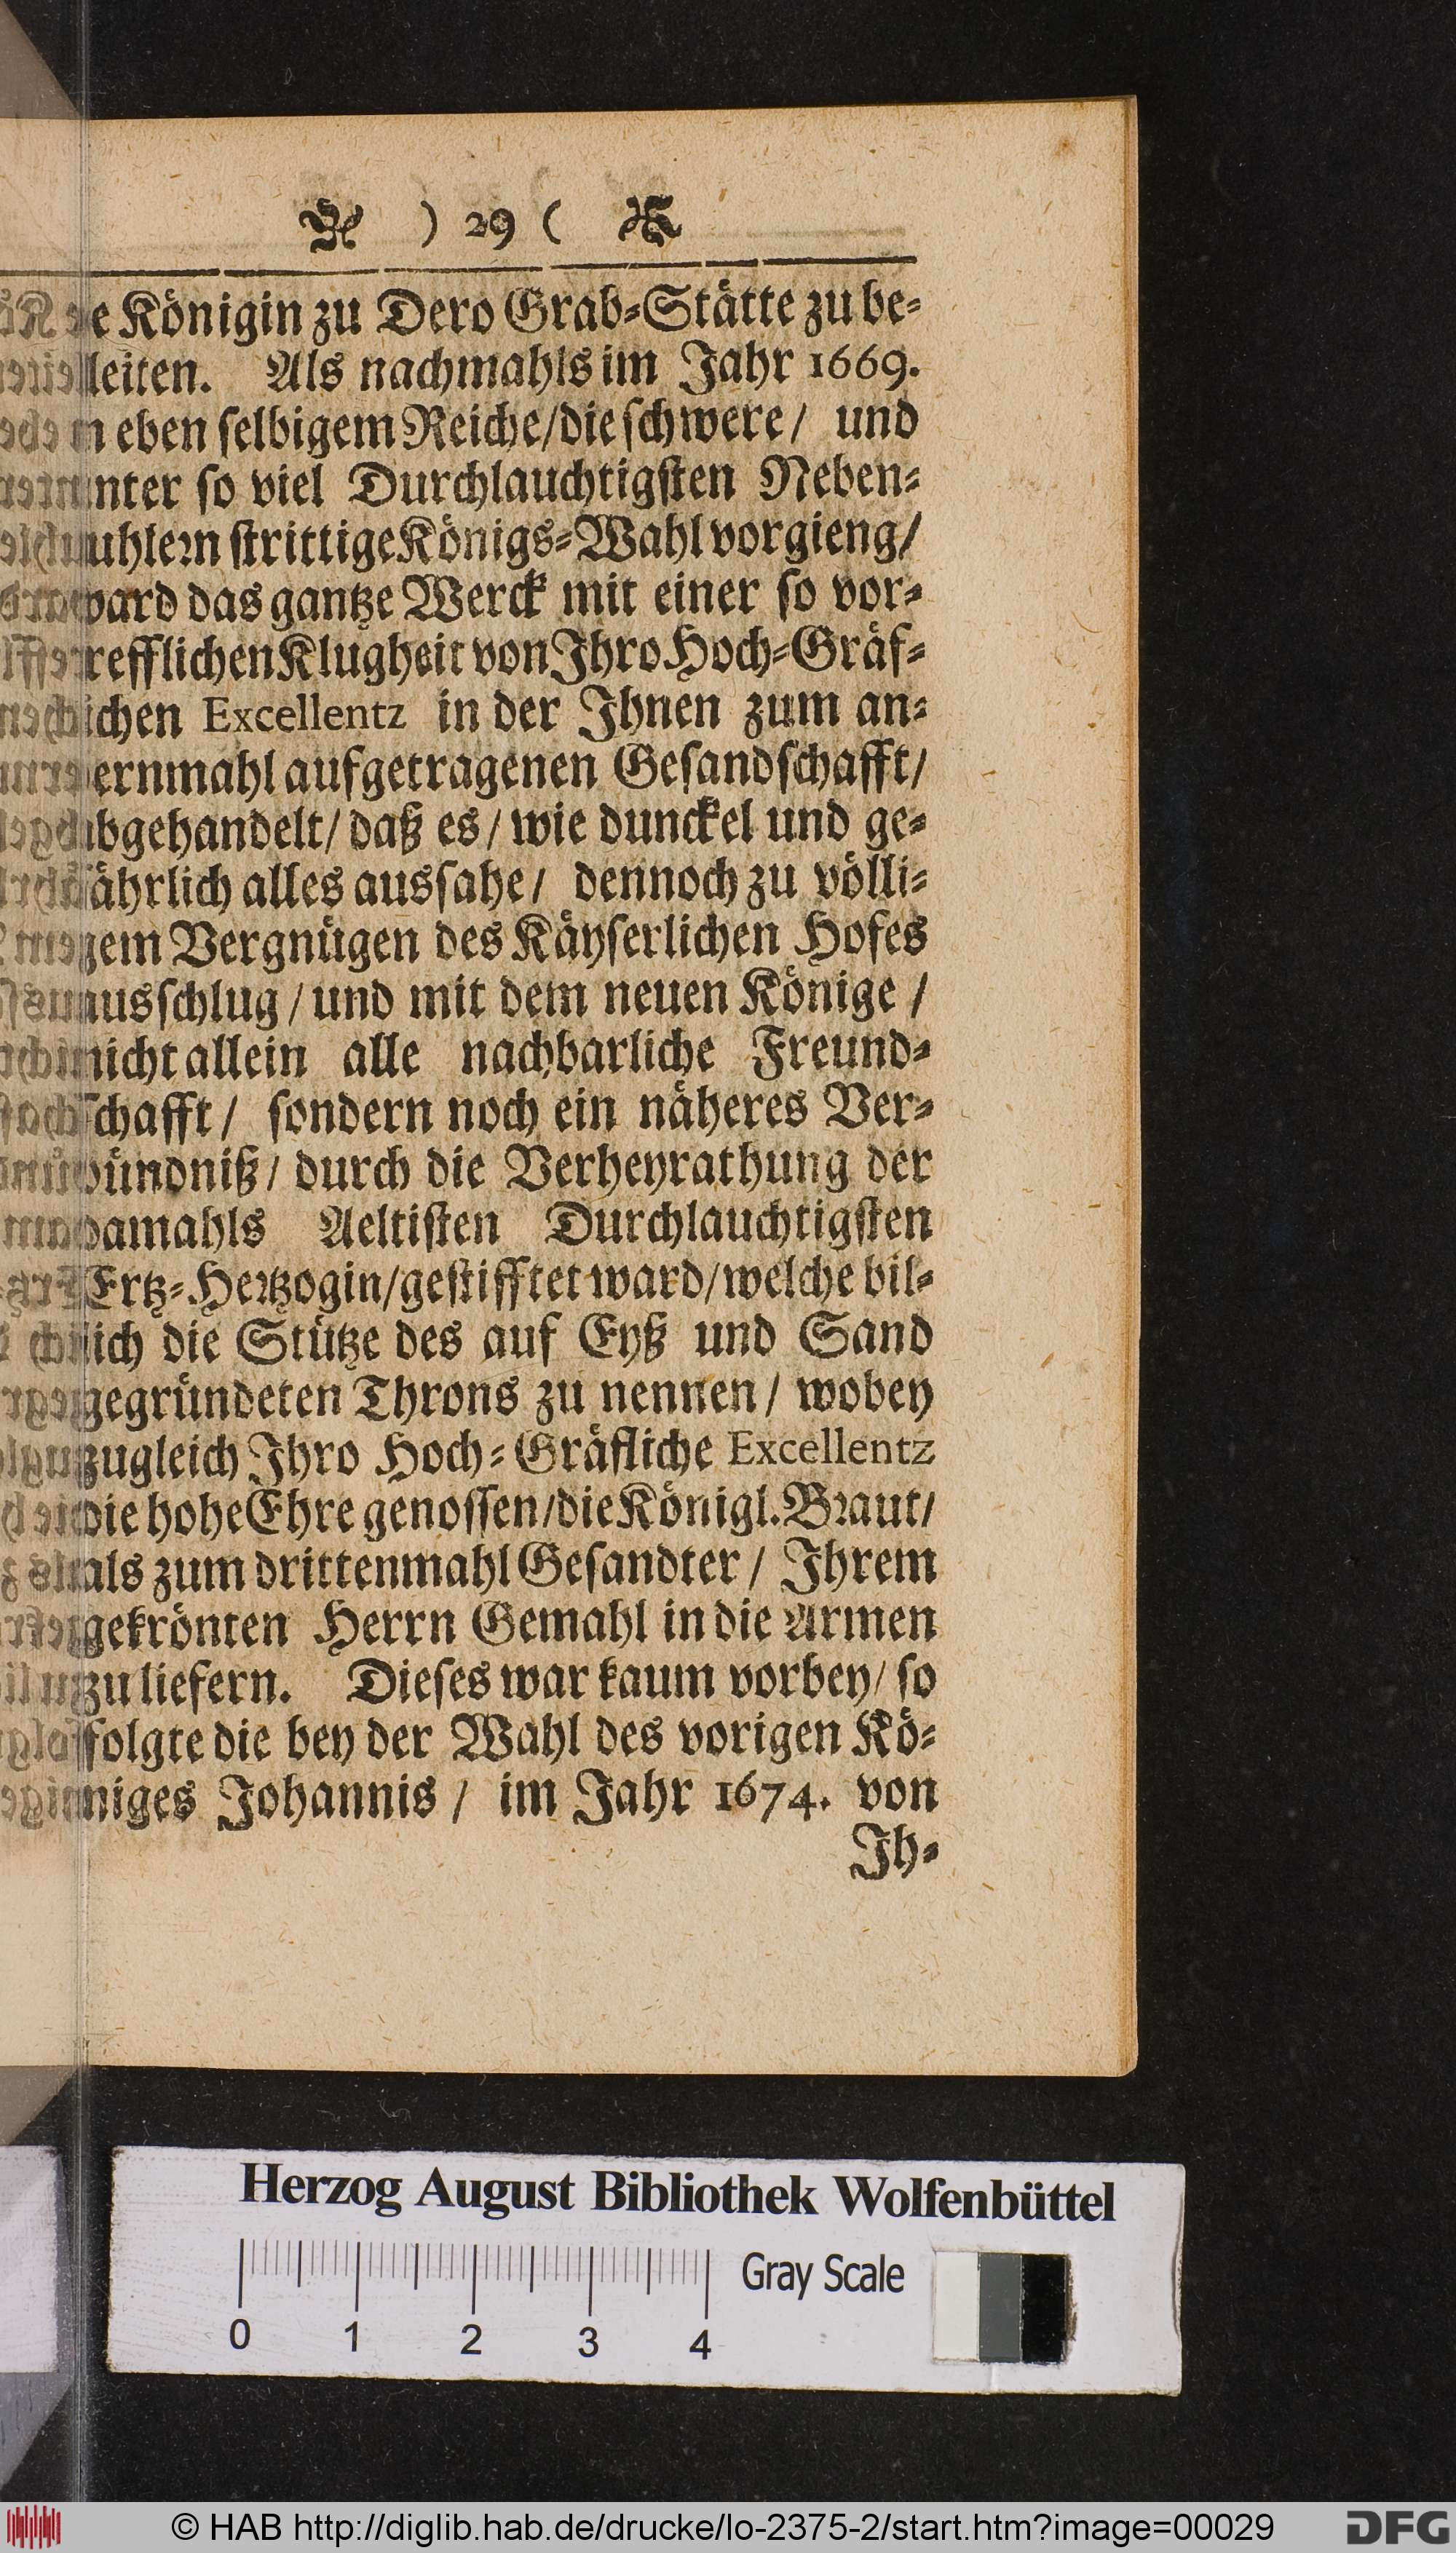 ) 29 (
e Königin zu Dero Grab-Stätte zu be-
leiten. Als nachmahls im Jahr 1669.
n eben selbigem Reiche/die schwere/ und
nter so viel Durchlauchtigsten Neben-
uhlern strittige Königs-Wahl vorgieng/
ward das gantze Werck mit einer so vor-
refflichen Klugheit von Ihro Hoch-Gräf-
ichen Excellentz in der Ihnen zum an-
ernmahl aufgetragenen Gesandschafft/
bgehandelt/ daß es/ wie dunckel und ge-
ährlich alles aussahe/ dennoch zu völli-
gem Vergnügen des Käyserlichen Hofes
ausschlug/ und mit dem neuen Könige/
nicht allein alle nachbarliche Freund-
schafft/ sondern noch ein näheres Ver-
bündniß/ durch die Verheyrathung der
damahls Aeltisten Durchlauchtigsten
Ertz-Hertzogin/gestifftet ward/welche bil-
lich die Stütze des auf Eyß und Sand
gegründeten Throns zu nennen/ wobey
zugleich Ihro Hoch-Gräfliche Excellentz
die hohe Ehre genossen/die Königl. Braut/
als zum drittenmahl Gesandter/ Ihrem
gekrönten Herrn Gemahl in die Armen
zu liefern. Dieses war kaum vorbey/ so
folgte die bey der Wahl des vorigen Kö-
niges Johannis/ im Jahr 1674. von
Ih-
Herzog August Bibliothek Wolfenbüttel
Gray Scale
0 1 2 3 4
© HAB http://diglib.hab.de/drucke/lo-2375-2/start.htm?image=00029
DFG